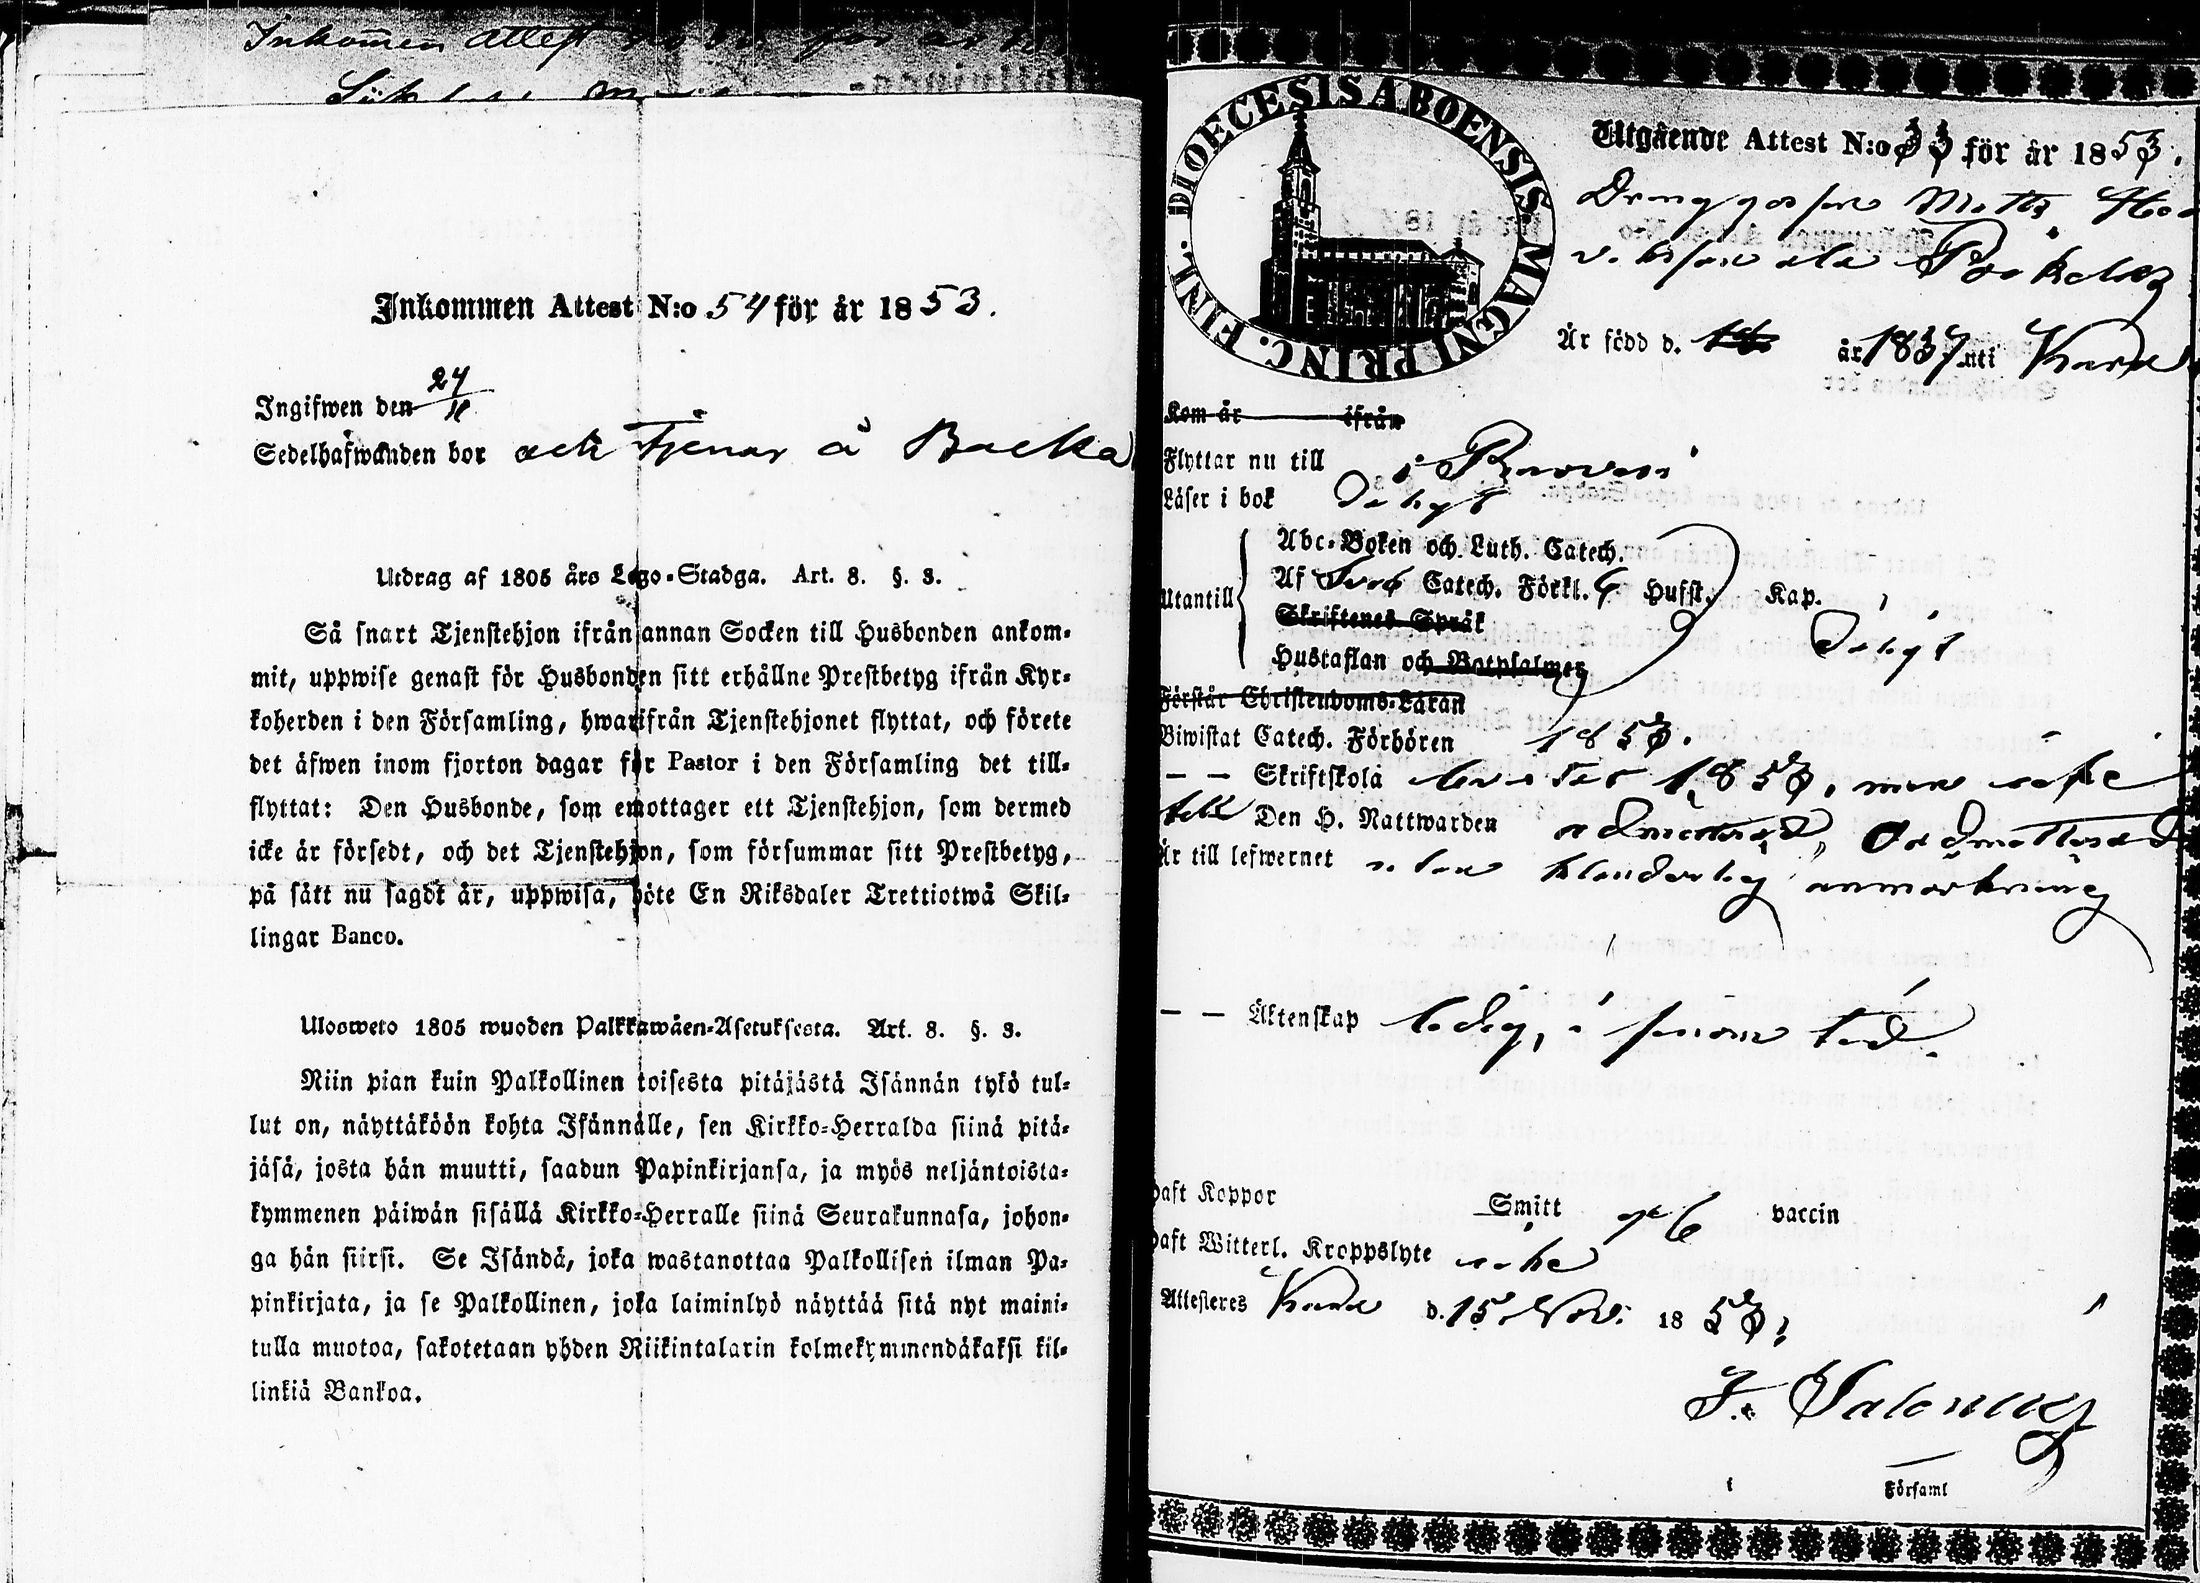 Inkommen Attest för
Inkommen Attest N:o 54 för år 1853.
Ingifwen den 24/11
Sedelhafwanden bor och tjenar å Backa
Utdrag af 1805 års Lego-Stadga. Art. 8. §. 3.
Så snart Tjenstehjon ifrån annan Socken till Husbonden ankom-
mit, uppwise genast för Husbonden sitt erhållne Prestbetyg ifrån Kyr-
koherden i den Församling, hwarifrån Tjenstehjonet flyttat, och förete
det äfwen inom fjorton dagar för Pastor i den Församling det till-
flyttat: Den Husbonde, som emottager ett Tjenstehjon, som dermed
icke är försedt, och det Tjenstehjon, som försummar sitt Prestbetyg,
på sätt nu sagdt är, uppwisa, böte En Riksdaler Trettiotwå Skil-
lingar Banco.
Uloosweto 1805 wuoden Palkkawäen-Asetuksesta. Art. 8. §. 3.
Niin pian kuin Palkollinen toisesta pitäjästä Isännän tykö tul-
lut on, näyttäköön kohta Isännälle, sen Kirkko-Herralda siinä pitä-
jäsä, josta hän muutti, saadun Papinkirjansa, ja myös neljäntoista-
kymmenen päiwän sisällä Kirkko-Herralle siinä Seurakunnasa, johon-
ga hän siirsi. Se Isändä, joka wastanottaa Palkollisen ilman Pa-
pinkirjata, ja se Palkollinen, joka laiminlyö näyttää sitä nyt maini-
tulla muotoa, sakotetaan yhden Riikintalarin kolmekymmendäkaksi kil-
linkiä Bankoa.
DIOECESIS ABOENSIS. MAGNI PRINC. FINL.
Utgående Attest N:o 33 för år 1853.
Drenggossen Matts
Är född d. år 1837 uti Karva
Kom år ifrån
Flyttar nu till
Läser i bok
Utantill
Abc-Boken och Luth. Catech.
Af Catech. Förkl. Hufst. Kap.
Skriftenes Språk
Hustaflan och Botpsalmer
Förstår Christendoms-Läran
Biwistat Catech. Förhören 1853.
— — Skriftskola 1853, men icke
till Den H. Nattwarden admitterad,
Är till lefwernet utan klanderlig anmärkning
— — Äktenskap ledig, i sinom tid.
haft Koppor Smitt vaccin
haft Witterl. Kroppslyte icke
Attesteres d. 15 Nov. 1853.
F. Salonius
i Församl